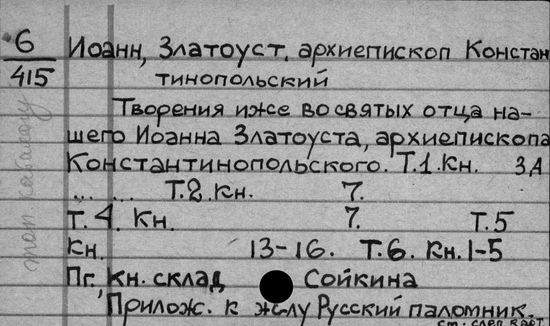 6
415
Иоанн, Златоуст, архиепископ Констан
тинопольский
Творения иже во святых отца на-
шего Иоанна Златоуста, архиепископа
Константинопольского. Т.1. Кн. 3,4
... ... Т.2. Кн. 7.
Т.4. Кн. 7. Т.5
Кн. 13-16. Т.6. Кн. 1-5
Пг., Кн. склад Сойкина
Прилож. к ж-лу Русский паломник.
ст. след карт